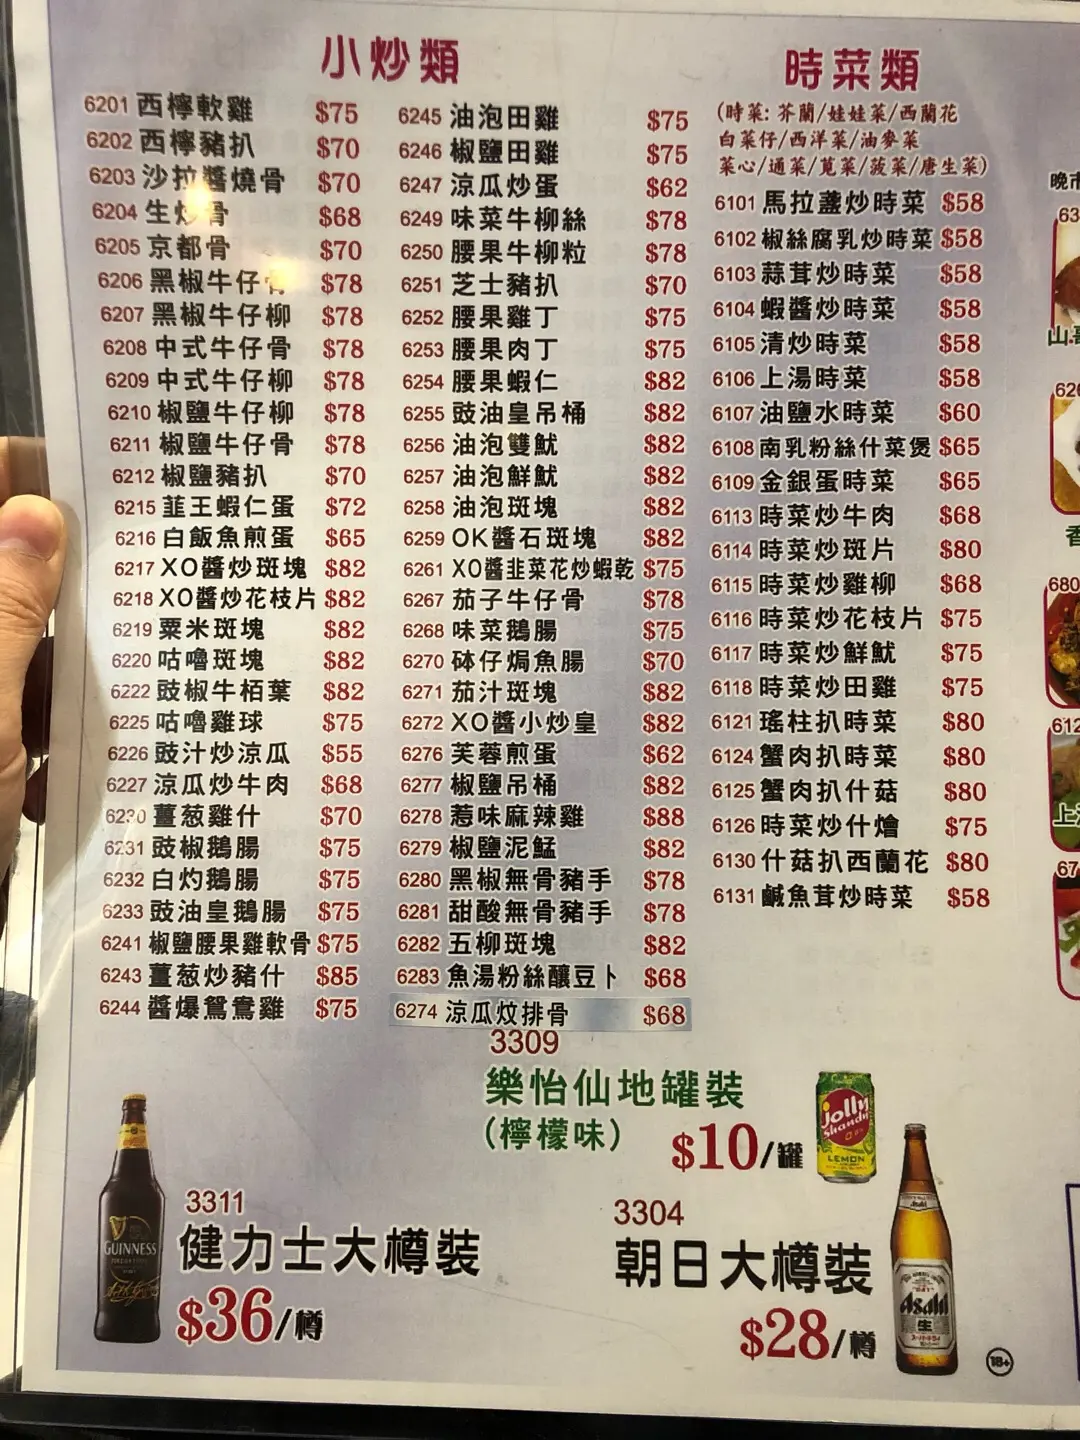 小炒類
6201 西檸軟雞 $75
6202 西檸豬扒 $70
6203 沙拉醬燒骨 $70
6204 生炒骨 $68
6205 京都骨 $70
6206 黑椒牛仔骨 $78
6207 黑椒牛仔柳 $78
6208 中式牛仔骨 $78
6209 中式牛仔柳 $78
6210 椒鹽牛仔柳 $78
6211 椒鹽牛仔骨 $78
6212 椒鹽豬扒 $70
6215 韮王蝦仁蛋 $72
6216 白飯魚煎蛋 $65
6217 XO醬炒斑塊 $82
6218 XO醬炒花枝片 $82
6219 粟米斑塊 $82
6220 咕嚕斑塊 $82
6222 豉椒牛栢葉 $82
6225 咕嚕雞球 $75
6226 豉汁炒涼瓜 $55
6227 涼瓜炒牛肉 $68
6230 薑葱雞什 $70
6231 豉椒鵝腸 $75
6232 白灼鵝腸 $75
6233 豉油皇鵝腸 $75
6241 椒鹽腰果雞軟骨 $75
6243 薑葱炒豬什 $85
6244 醬爆鴛鴦雞 $75
6245 油泡田雞 $75
6246 椒鹽田雞 $75
6247 涼瓜炒蛋 $62
6249 味菜牛柳絲 $78
6250 腰果牛柳粒 $78
6251 芝士豬扒 $70
6252 腰果雞丁 $75
6253 腰果肉丁 $75
6254 腰果蝦仁 $82
6255 豉油皇吊桶 $82
6256 油泡雙魷 $82
6257 油泡鮮魷 $82
6258 油泡斑塊 $82
6259 OK醬石斑塊 $82
6261 XO醬韭菜花炒蝦乾 $75
6267 茄子牛仔骨 $78
6268 味菜鵝腸 $75
6270 砵仔焗魚腸 $70
6271 茄汁斑塊 $82
6272 XO醬小炒皇 $82
6276 芙蓉煎蛋 $62
6277 椒鹽吊桶 $82
6278 惹味麻辣雞 $88
6279 椒鹽泥鯭 $82
6280 黑椒無骨豬手 $78
6281 甜酸無骨豬手 $78
6282 五柳斑塊 $82
6283 魚湯粉絲釀豆卜 $68
6274 涼瓜炆排骨 $68
時菜類
(時菜: 芥蘭/娃娃菜/西蘭花
白菜仔/西洋菜/油麥菜
菜心/通菜/莧菜/菠菜/唐生菜)
6101 馬拉盞炒時菜 $58
6102 椒絲腐乳炒時菜 $58
6103 蒜茸炒時菜 $58
6104 蝦醬炒時菜 $58
6105 清炒時菜 $58
6106 上湯時菜 $58
6107 油鹽水時菜 $60
6108 南乳粉絲什菜煲 $65
6109 金銀蛋時菜 $65
6113 時菜炒牛肉 $68
6114 時菜炒斑片 $80
6115 時菜炒雞柳 $68
6116 時菜炒花枝片 $75
6117 時菜炒鮮魷 $75
6118 時菜炒田雞 $75
6121 瑤柱扒時菜 $80
6124 蟹肉扒時菜 $80
6125 蟹肉扒什菇 $80
6126 時菜炒什燴 $75
6130 什菇扒西蘭花 $80
6131 鹹魚茸炒時菜 $58
3309
樂怡仙地罐裝
(檸檬味)
$10/罐
Jolly
Shandy
LEMON
3311
健力士大樽裝
$36/樽
GUINNESS
3304
朝日大樽裝
$28/樽
Asahi
生
18+
晚市
63
山
620
香
680
612
上
67